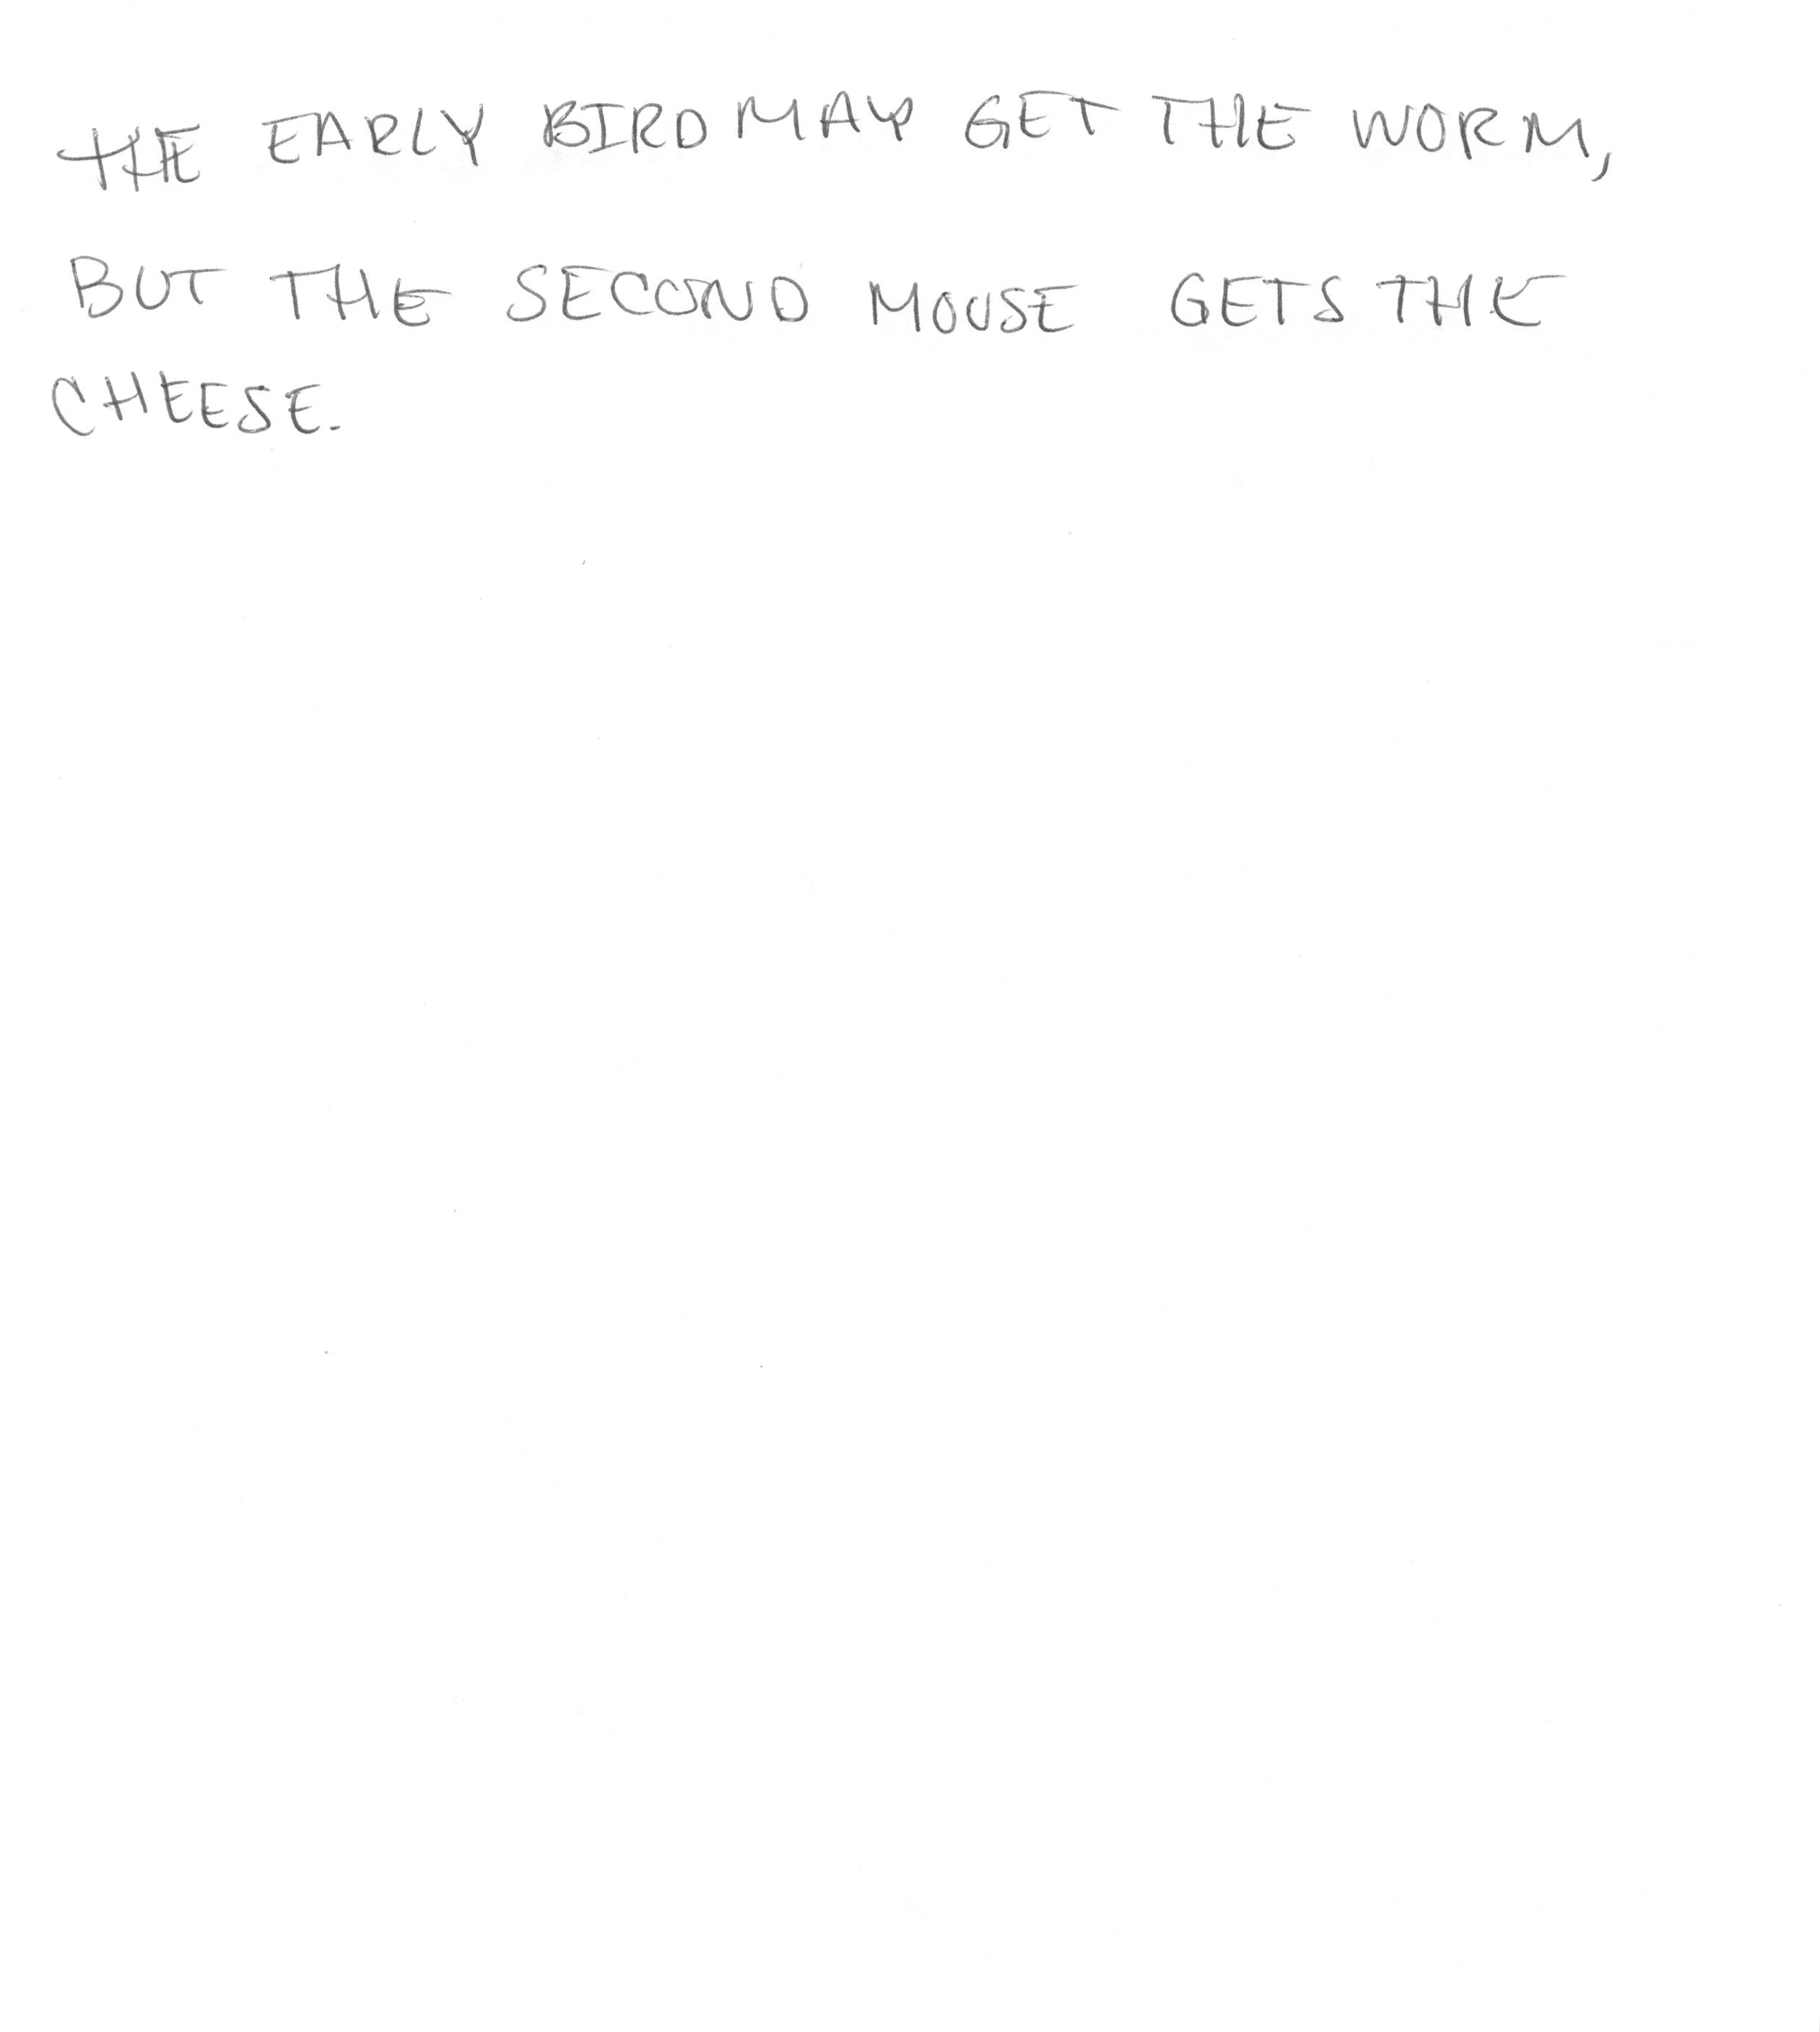 THE EARLY BIRD MAY GET THE WORM,
BUT THE SECOND MOUSE GETS THE
CHEESE.